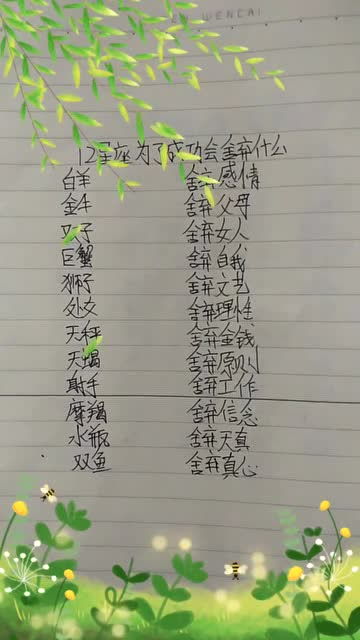 WENCAI
12星座为了成功会舍弃什么
白羊 舍弃感情
金牛 舍弃父母
双子 舍弃女人
巨蟹 舍弃自我
狮子 舍弃文艺
处女 舍弃理性
天秤 舍弃金钱
天蝎 舍弃原则
射手 舍弃工作
摩羯 舍弃信念
水瓶 舍弃天真
双鱼 舍弃真心